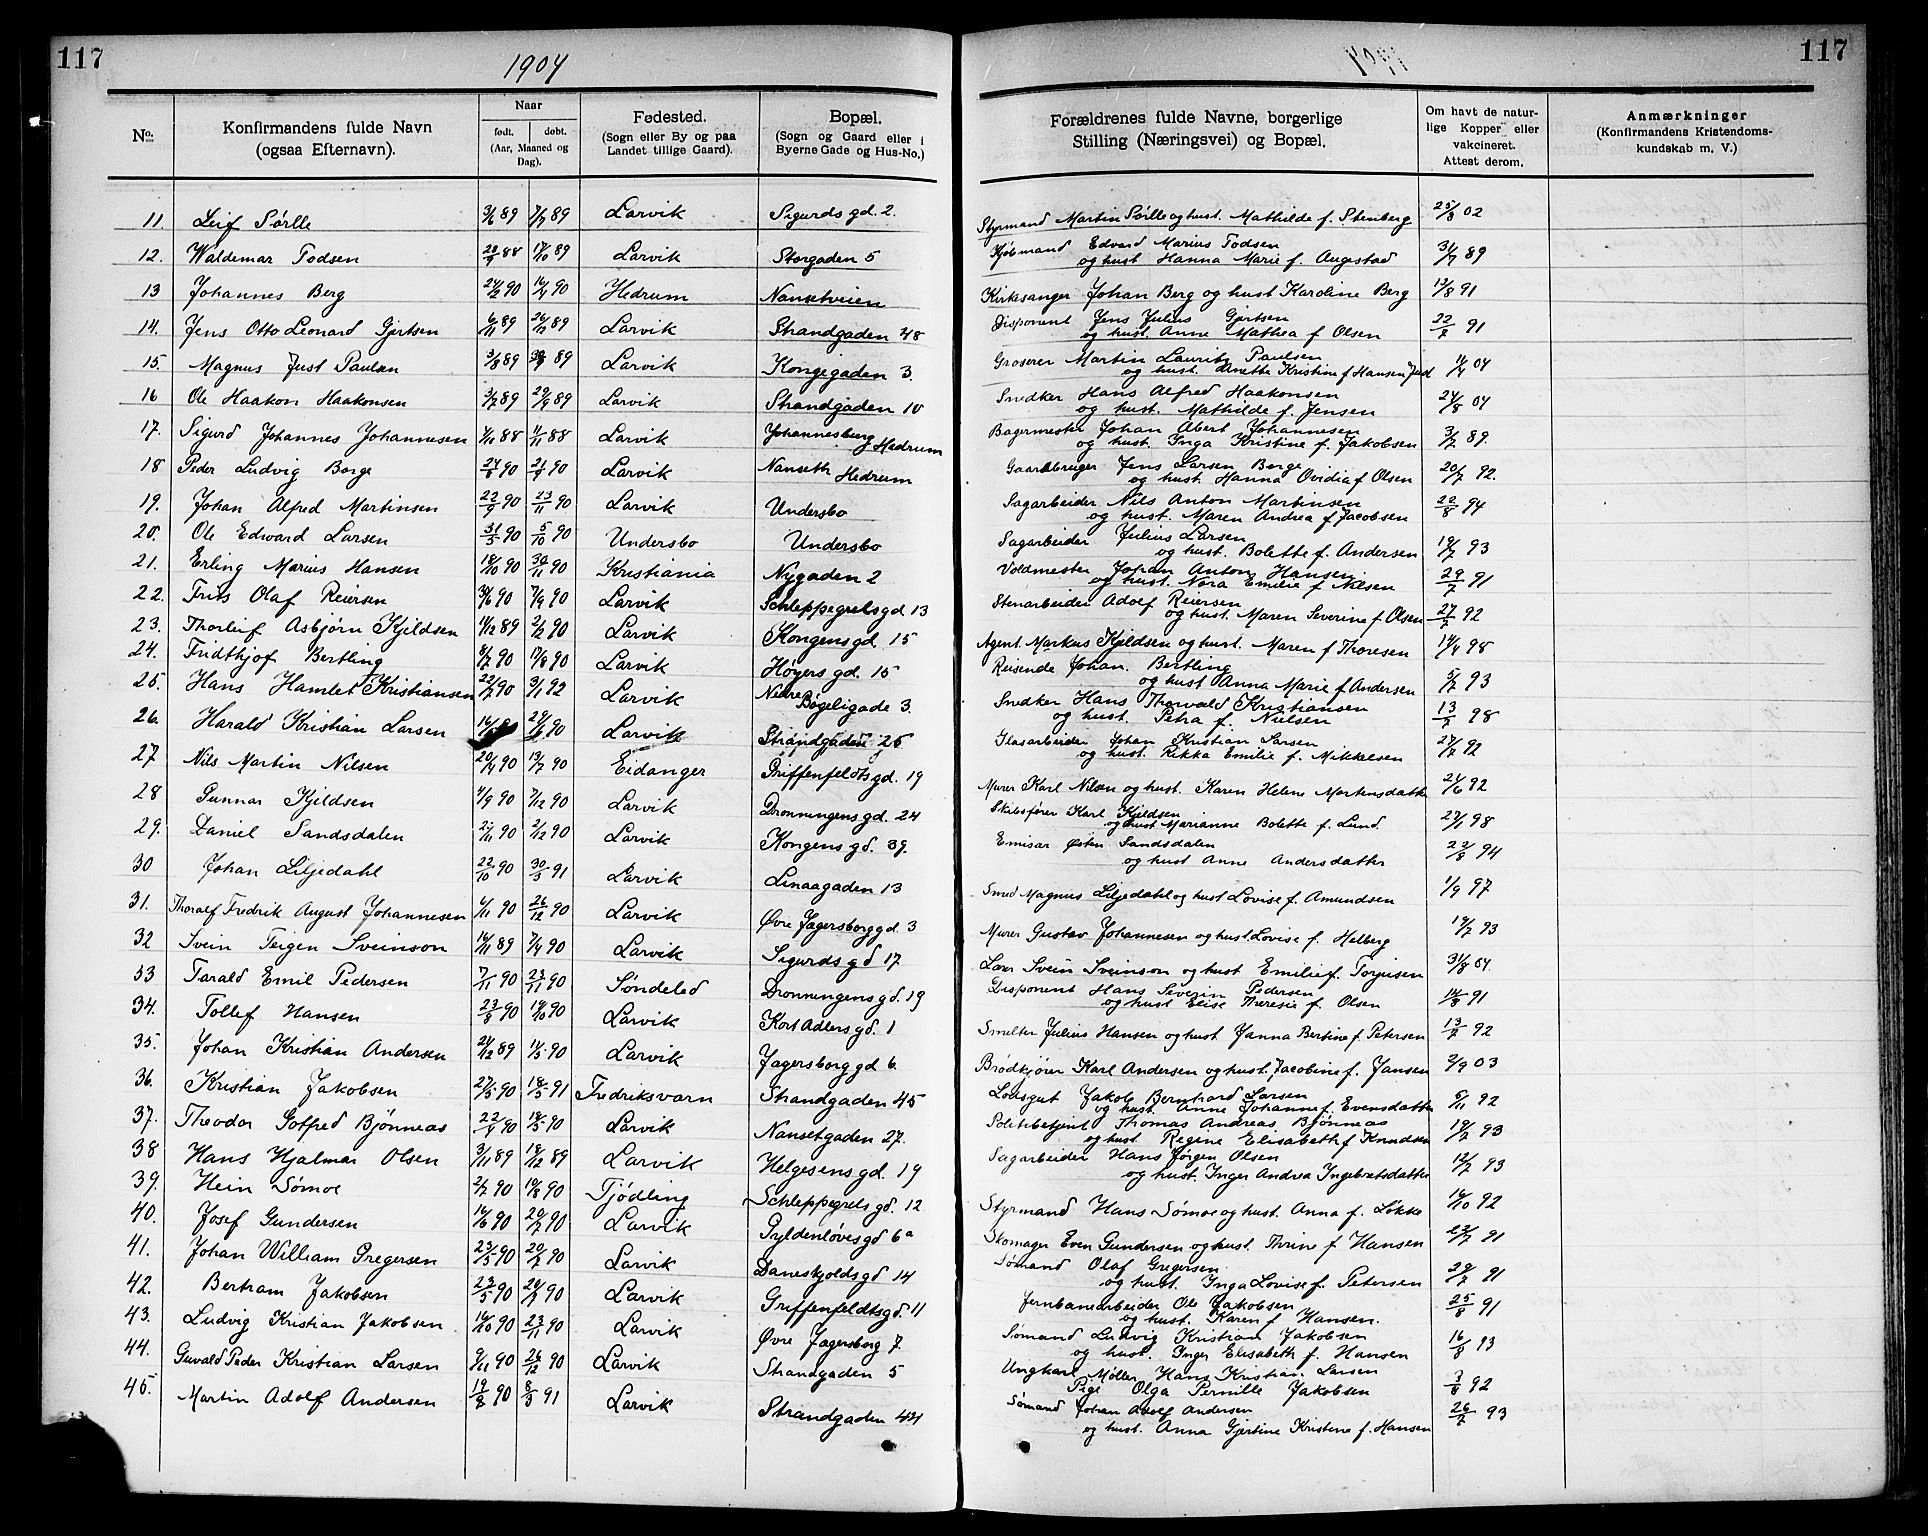 117
1904
117
No.
Konfirmandens fulde Navn
(ogsaa Efternavn).
Naar
født.
døbt.
(Aar, Maaned og
Dag).
Fødested.
(Sogn eller By og paa
Landet tillige Gaard).
Bopæl.
(Sogn og Gaard eller i
Byerne Gade og Hus-No.)
Forældrenes fulde Navne, borgerlige
Stilling (Næringsvei) og Bopæl.
Om havt de natur-
lige Kopper eller
vakcineret.
Attest derom.
Anmærkninger
(Konfirmandens Kristendoms-
kundskab m. V.)
11. Leif Sørlle 3/6 89 7/7 89 Larvik Sigurds gd. 2. Styrmand Martin Sørlle og hust. Mathilde f. Stenberg 25/8 02
12. Waldemar Todsen 88 17/10 89 Larvik Storgaden 5 Kjøbmand Edvard Marius Todsen
og hust. Hanna Marie f. Augestad 31/7 89
13 Johannes Berg 24/2 90 16/4 90 Hedrum Nansetveien Kirkesanger Johan Berg og hust Karoline Berg 13/8 91
14. Jens Otto Leonard Gjertsen 6/11 89 26/12 89 Larvik Strandgaden 48 Disponent Jens Julius Gjertsen
og hust. Anne Mathea f Olsen 22/7 91
15. Magnus Just Paulsen 3/8 89 89 Larvik Kongegaden 3. Groserer Martin Lauritz Paulsen
og hust. Anette Kristine f Hansen Just 11/4 04
16 Ole Haakon Haakonsen 3/7 89 29/9 89 Larvik Strandgaden 10 Snedker Hans Alfred Haakonsen
og hust. Mathilde f. Jensen 24/8 04
17. Sigurd Johannes Johannesen 88 11/11 88 Larvik Johannesberg Hedrum Bagermester Johan Abert Johannesen
og hust. Inga Kristine f. Jakobsen 3/7 89.
18 Peder Ludvig Borge 90 21/9 90 Larvik Nanseth Hedrum Gaardbruger Jens Larsen Borge
og hust. Hanna Ovidia f Olsen 20/7 92.
19. Johan Alfred Martinsen 22/9 90 23/11 90 Larvik Undersbo Sagarbeider Nils Anton Martinsen
og hust. Maren Andrea f Jacobsen 22/8 94
20. Ole Edward Larsen 31/5 90 5/10 90 Undersbo Undersbo Sagarbeider Julius Larsen
og hust. Bolette f. Andersen 19/7 93
21. Erling Marius Hansen 18/10 90 30/11 90 Kristiania Nygaden 2 Voldmester Johan Anton Hansen
og hust. Nora Emilie f Nilsen 29/7 91
22. Frits Olaf Reiersen 30/6 90 7/9 90 Larvik Schleppegrelsgd. 13 Stenarbeider Adolf Reiersen
og hust. Maren Severine f Olsen 27/7 92
23. Thorleif Asbjørn Kjeldsen 11/12 89 2/2 90 Larvik Kongensgd. 15 Agent. Markus Kjeldsen og hust. Maren f Thoresen 14/4 98
24. Fridthjof Bertling 90 17/8 90 Larvik Høyers gd. 15 Reisende Johan Bertling
og hust Anna Marie f Andersen 5/7 93
25. Hans Hamlet Kristiansen 22/7 90 3/1 92 Larvik Nedre
Bøgeligade 3. Snedker Hans Thorvald Kristiansen
og hust. Petra f. Nielsen 13/7 98
26. Harald Kristian Larsen 29/6 90 Larvik Strandgaden 25 Glasarbeider Johan Kristian Larsen
og hust. Rikka Emilie f Mikkelsen 27/7 92
27 Nils Martin Nilsen 20/4 90 13/7 90 Eidanger Griffenfeldtsgd. 19 Murer Karl Nilsen og hust. Karen Helene Mortensdatter 24/6 92
28 Gunnar Kjeldsen 4/9 90 7/12 90 Larvik Dronningensgd. 24 Skibsfører Karl Kjeldsen
og hust Marianne Bolette f. Lund. 27/1 98
29. Daniel Sandsdalen 21/11 90 2/12 90 Larvik Kongensgd. 39. Emisær Østen Sandsdalen
og hust Anne Andersdatter 22/8 94
30 Johan Liljedahl 22/10 90 30/3 91 Larvik Linaagaden 13 Smed Magnus Liljedahl og hust Lovise f. Amundsen 1/9 97
31. Thoralf Fredrik August Johannesen 4/11 90 26/12 90 Larvik Øvre Jagersborggd. 3 Murer Gustav Johannesen og hust Lovise f. Helberg 19/7 93
32 Svein Teigen Sveinson 16/11 89 7/4 90 Larvik Sigurdsgd 17 Lærer Svein Sveinson og hust Emilie f. Torjusen 31/8 04.
33 Tarald Emil Pedersen 7/11 90 23/11 90 Søndeled Dronningensgd. 19 Disponent Hans Severin Pedersen
og hust Elise Theresie f. Olsen 14/8 91
34. Tollef Hansen 23/8 90 19/10 90 Larvik Kort Adlersgd. 1 Smelter Julius Hansen og hust Janna Bertine f. Petersen 13/7 92
35. Johan Kristian Andersen 24/12 89 11/5 90 Larvik Jagersborggd 6. Brødkjører Karl Andersen og hust. Jacobine f. Jansen 2/9 03
36. Kristian Jakobsen 27/5 90 18/5 91 Fredriksvarn Strandgaden 45 Lodsgut Jakob Bernhard Larsen
og hust. Anne Johanne f. Evensdatter 5/11 92
37. Theodor Gotfred Bjønneas 22/4 90 18/5 90 Larvik Nansetgaden 27. Politibetjent Thomas Andreas Bjønneas
og hust. Regine Elisabeth f Knudsen 19/7 93
38 Hans Hjalmar Olsen 3/11 89 18/12 89 Larvik Helgesensgd. 19 Sagarbeider Hans Jørgen Olsen
og hust. Inger Andrea Ingebretsdatter 12/7 93
39. Hein Sømoe 2/7 90 19/8 90 Tjødling Schleppegrelsgd. 12 Styrmand Hans Sømoe og hust. Anna f. Løkke 14/10 92
40. Josef Gundersen 16/6 90 20/7 90 Larvik Gyldenløvesgd 6a Skomager Even Gundersen og hust. Thrine f Hansen 91
41. Johan William Gregersen 23/5 90 20/7 90 Larvik Daneskjoldsgd 14 Sømand Olaf Gregersen
og hust. Inga Lovise f. Petersen 29/7 91
42. Bertram Jakobsen 23/5 90 24/7 90 Larvik Griffenfeldtsgd. 11 Jernbanearbeider Ole Jakobsen
og hust. Karen f Hansen. 25/8 91
43. Ludvig Kristian Jakobsen 14/10 90 23/11 90 Larvik Øvre Jagersborg 7 Sømand Ludvig Kristian Jakobsen
og hust. Inger Elisabeth f. Hansen 16/8 93
44. Guvald Peder Kristian Larsen 9/11 90 26/12 90 Larvik Strandgaden 5 Ungkarl Møller Hans Kristian Larsen
Pige Olga Pernille Jakobsen 3/8 92
45. Martin Adolf Andersen 19/8 90 8/3 91 Larvik Strandgaden 44 Sømand Johan Adolf Andersen
og hust. Anna Gjertine Kristine f. Hansen 26/7 93